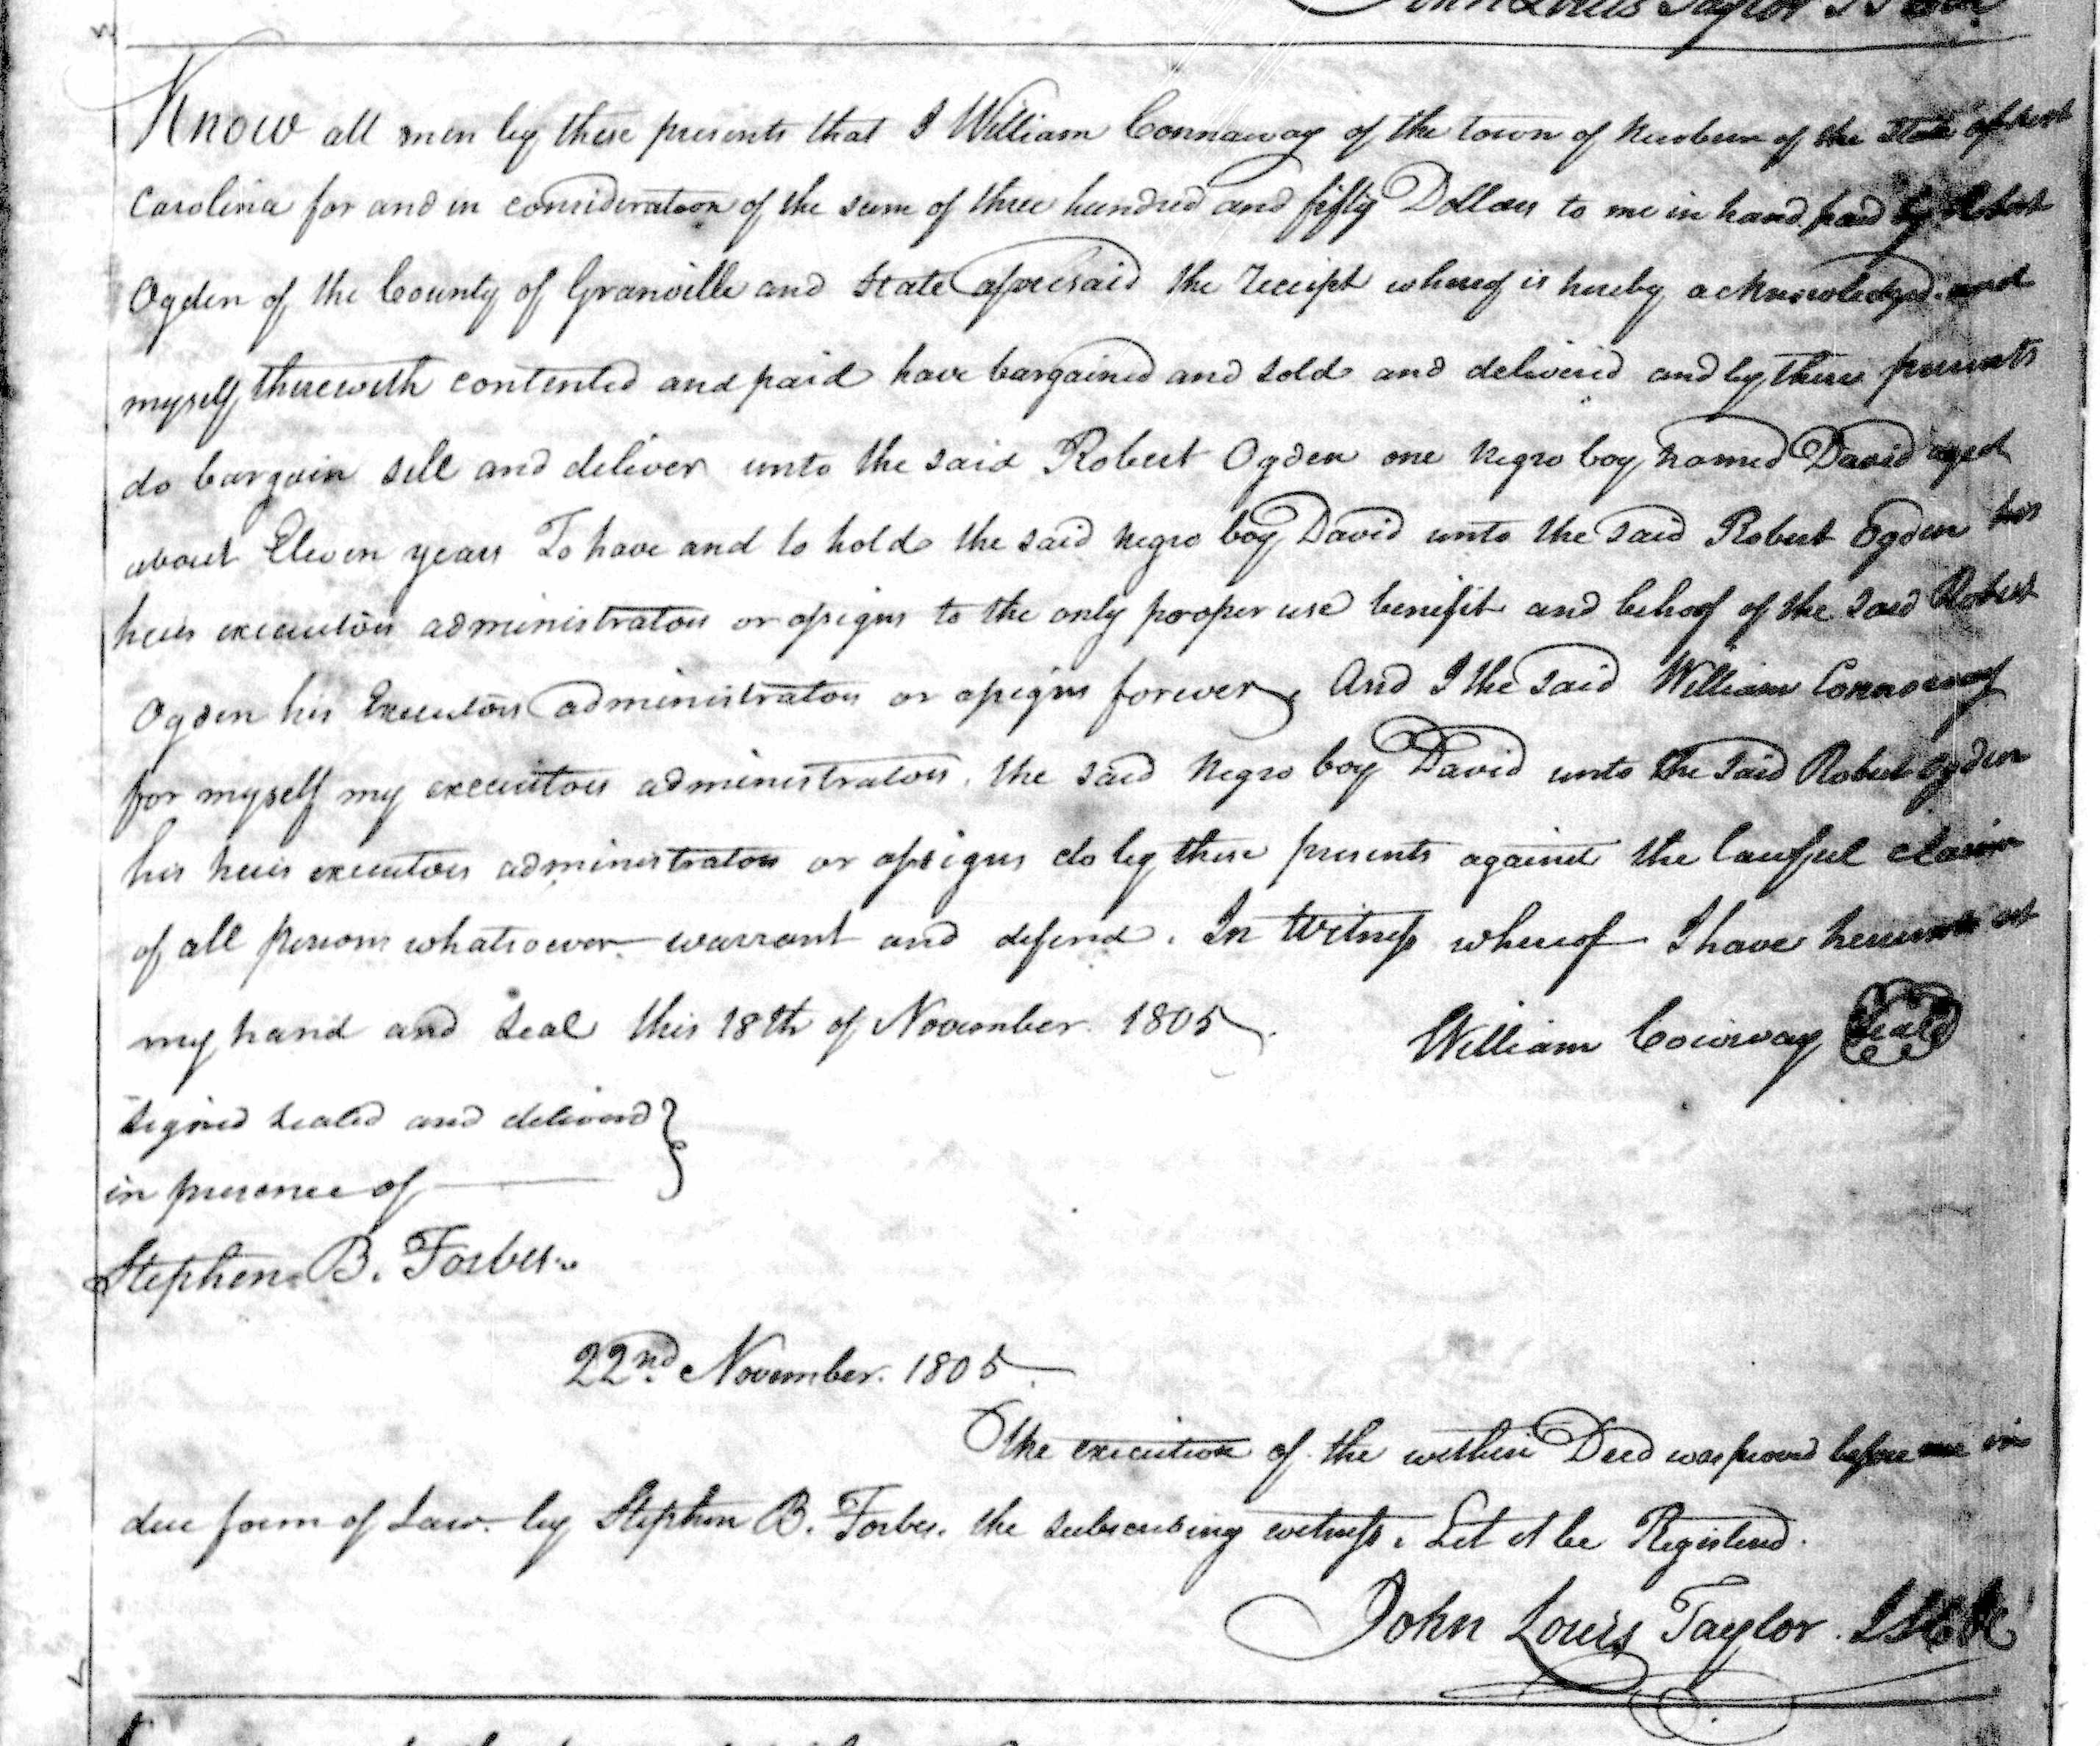 John Louis Taylor
Know all men by these presents that I William Connaway of the town of Newbern of the State of North
Carolina for and in consideration of the sum of three hundred and fifty Dollars to me in hand paid by Robert
Ogden of the County of Granville and State aforesaid the receipt whereof is hereby acknowledged and
myself therewith contented and paid have bargained and sold and delivered and by these presents
do bargain sell and deliver unto the said Robert Ogden one negro boy named David aged
about Eleven years To have and to hold the said negro boy David unto the said Robert Ogden his
heirs executors administrators or assigns to the only proper use benefit and behoof of the said Robert
Ogden his Executors administrators or assigns forever, And I the said William Connaway
for myself my executors administrators, the said Negro boy David unto the said Robert Ogden
his heirs executors administrators or assigns do by these presents against the lawful claim
of all persons whatsoever warrant and defend. In Witness whereof I have hereunto set
my hand and seal this 18th of November 1805. William Conway Seal
Signed sealed and deliverd
in presence of
Stephen B. Forbes
22nd November. 1805
The execution of the within Deed was proved before me in
due form of Law by Stephen B. Forbes, the subscribing witness, Let it be Registerd.
John Louis Taylor.